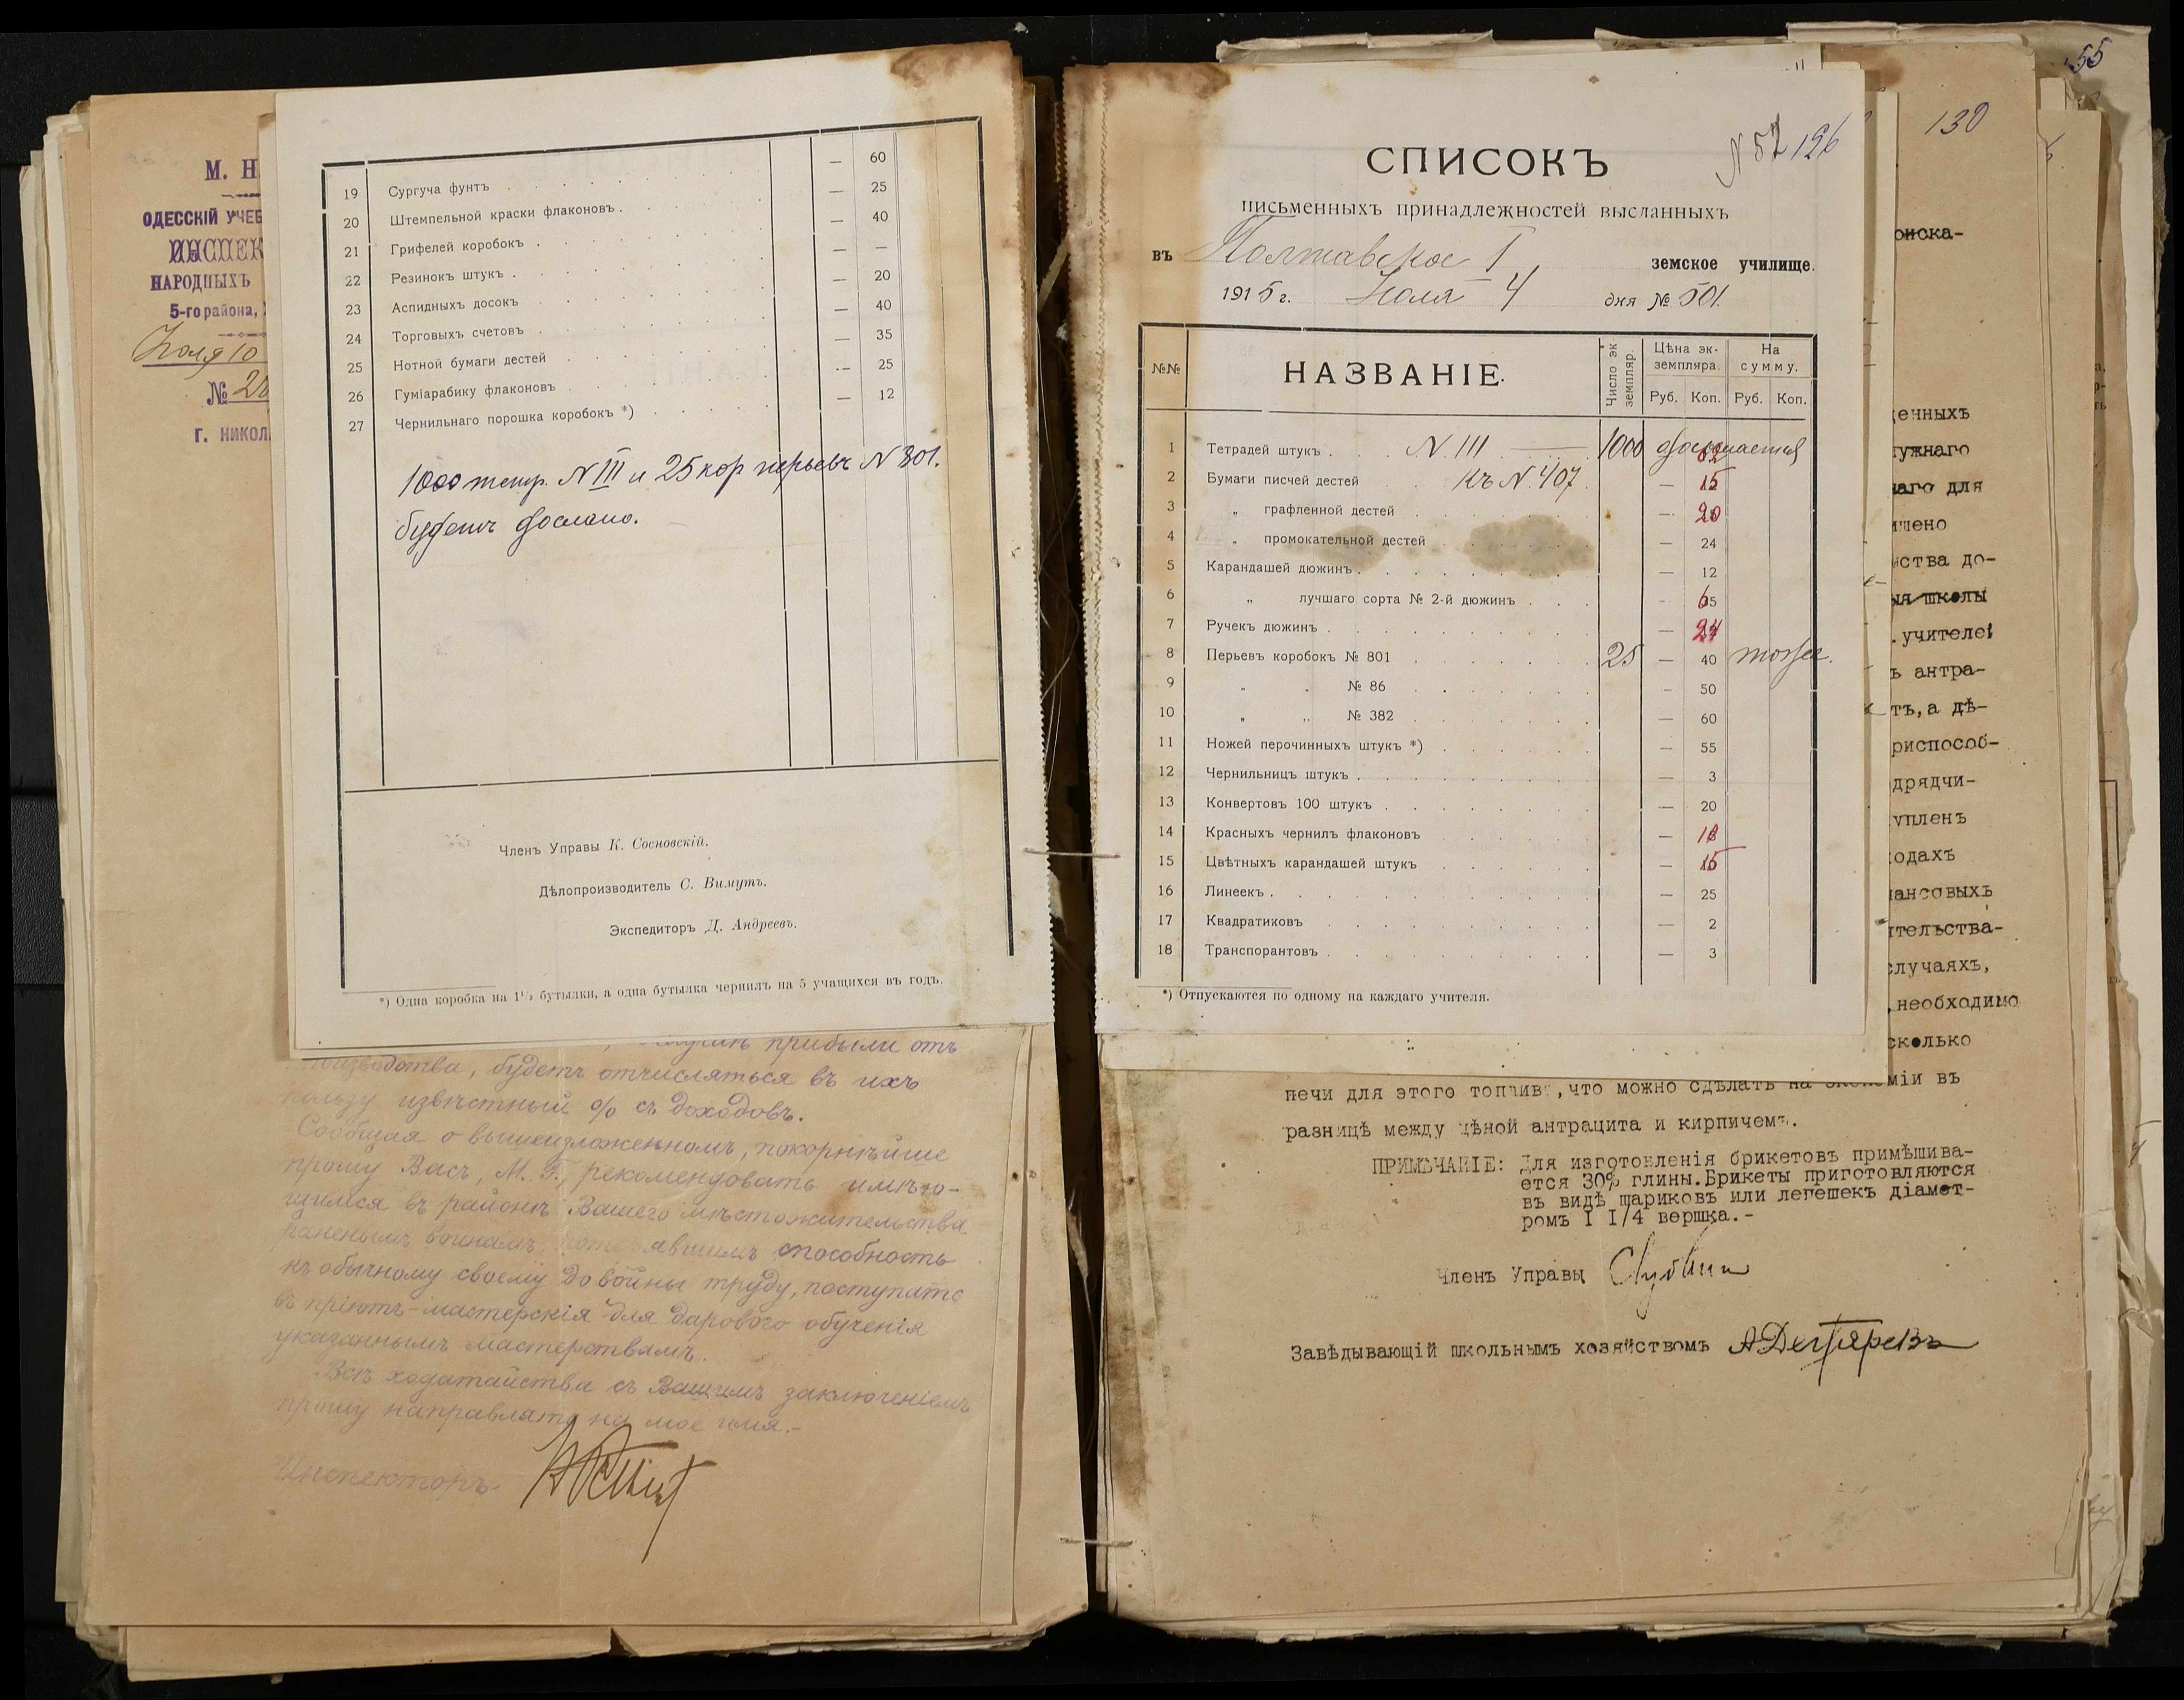 М. Н.
ОДЕССКІЙ УЧЕБ
ИНСПЕК
НАРОДНЫХЪ
5-го района,
Іюля 10
№ 28
Г. НИКОЛ
— 60
19 Сургуча фунтъ — 25
20 Штемпельной краски флаконовъ — 40
21 Грифелей коробокъ — —
22 Резинокъ штукъ — 20
23 Аспидныхъ досокъ — 40
24 Торговыхъ счетовъ — 35
25 Нотной бумаги дестей — 25
26 Гуміарабику флаконовъ — 12
27 Чернильнаго порошка коробокъ *)
1000 тетр. N III и 25 кор перьевъ N 801.
будетъ дослано.
Членъ Управы К. Сосновскій.
Дѣлопроизводитель С. Вимутъ.
Экспедиторъ Д. Андреевъ.
*) Одна коробка на 1½ бутылки, а одна бутылка чернилъ на 5 учащихся въ годъ.
прибыли отъ
будетъ отчисляться въ ихъ
пользу извѣстный % съ доходовъ.
Сообщая о вышеизложенномъ, покорнѣйше
прошу Васъ, М. Г., рекомендовать имѣю-
щимся въ районѣ Вашего мѣстожительства
раненымъ воинамъ, способность
къ обычному своему до войны труду, поступать
въ пріютъ-мастерскія для дарового обученія
указаннымъ мастерствамъ.
Всѣ ходатайства съ Вашимъ заключеніемъ
прошу направлять на мое имя.-
Инспекторъ
55
130
N 52 126
СПИСОКЪ
письменныхъ принадлежностей высланныхъ
въ Полтавское I земское училище.
1915 г. Іюля 4 дня № 501.
№№ НАЗВАНІЕ. Число экземпляр. Цѣна экземпляра. На сумму.
Руб. Коп. Руб. Коп.
1 Тетрадей штукъ N. III 1000 досылается
2 Бумаги писчей дестей Къ N. 407. — 15
3 „ графленной дестей — 20
4 „ промокательной дестей — 24
5 Карандашей дюжинъ — 12
6 „ лучшаго сорта № 2-й дюжинъ - 65
7 Ручекъ дюжинъ — 24
8 Перьевъ коробокъ № 801 25 — 40 тоже.
9 „ „ № 86 — 50
10 „ „ № 382 — 60
11 Ножей перочинныхъ штукъ *) — 55
12 Чернильницъ штукъ — 3
13 Конвертовъ 100 штукъ — 20
14 Красныхъ чернилъ флаконовъ — 18
15 Цвѣтныхъ карандашей штукъ — 15
16 Линеекъ — 25
17 Квадратиковъ — 2
18 Транспорантовъ — 3
*) Отпускаются по одному на каждаго учителя.
оиска-
енныхъ
ужнаго
наго для
ишено
ства до-
ыя школы
.учителей
ъ антра-
тъ,а дѣ-
риспособ-
дрядчи-
упленъ
одахъ
ансовыхъ
ительства-
случаяхъ,
необходимо
сколько
печи для этого топлива,что можно сдѣлать на экономіи въ
разницѣ между цѣной антрацита и кирпичемъ.
ПРИМѢЧАНІЕ: Для изготовленія брикетовъ примѣшива-
ется 30% глины.Брикеты приготовляются
въ видѣ шариковъ или лепешекъ діамет-
ромъ I I/4 вершка.-
Членъ Управы
Завѣдывающій школьнымъ хозяйствомъ А Дегтяревъ